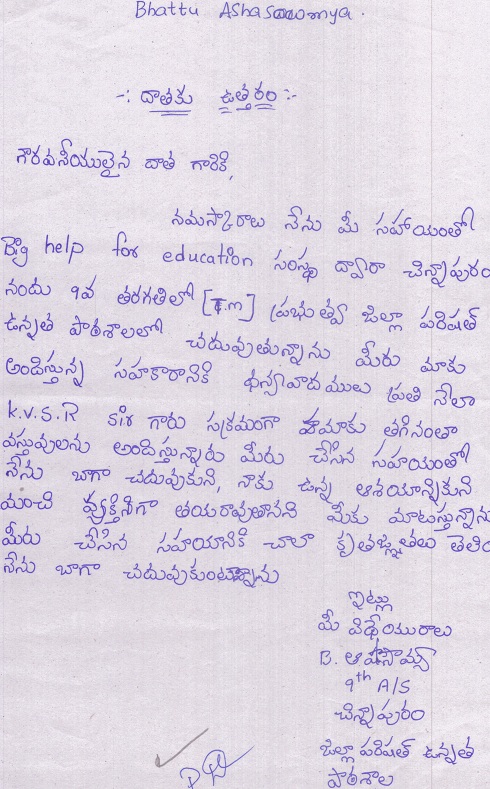 Bhattu AShaSowmya.
-: దాతకు ఉత్తరం :-
గౌరవనీయులైన దాత గారికి,
నమస్కారాలు నేను మీ సహాయంతో
Big help for education సంస్థ ద్వారా చిన్నాపురం
నందు 9వ తరగతిలో [T.m] ప్రభుత్వ జిల్లా పరిషత్
ఉన్నత పాఠశాలలో చదువుతున్నాను మీరు మాకు
అందిస్తున్న సహకారానికి ధన్యవాదములు ప్రతి నెలా
K.V.S.R sir గారు సక్రమంగా మాకు తగినంతా
వస్తువులను అందిస్తున్నారు మీరు చేసిన సహయంతో
నేను బాగా చదువుకుని, నాకు ఉన్న ఆశయాన్నికుని
మంచి వ్యక్తినిగా తయరావుతానని మీకు మాటస్తున్నాను
మీరు చేసిన సహయానికి చాలా కృతజ్ఞతలు తెలి
నేను బాగా చదువుకుంటున్నాను
ఇట్లు
మీ విధేయురాలు
B. ఆషాసౌమ్య
9th A/S
చిన్నాపురం
జిల్లా పరిషత్ ఉన్నత
పాఠశాల